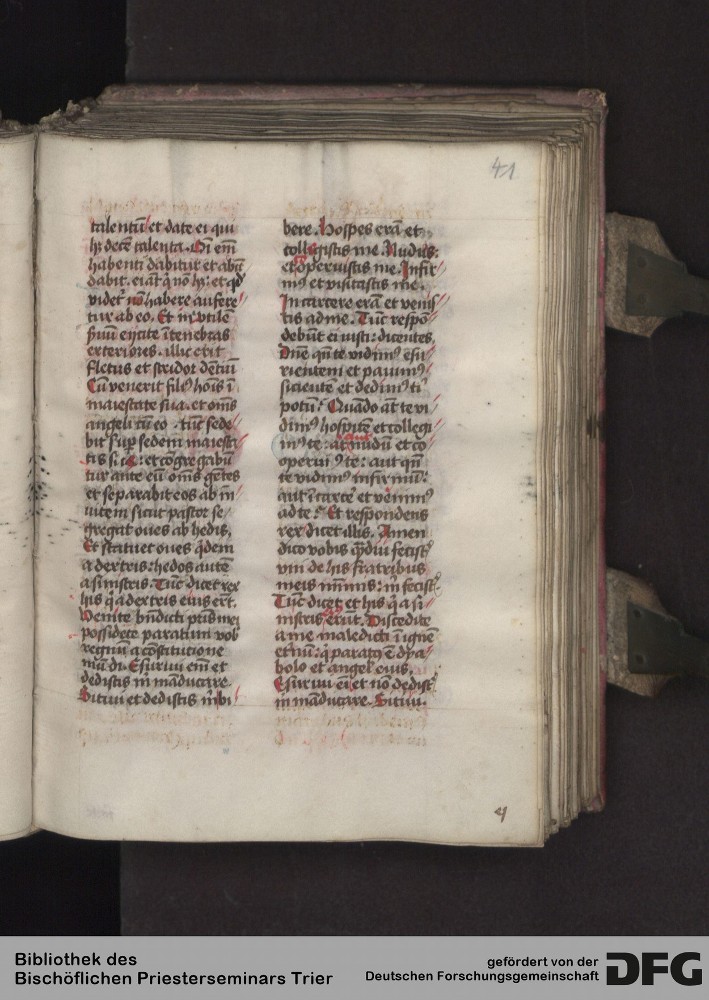 41
talentū et date ei qui
hȝ decē talenta. Oi em̄
habenti dabitur et abū
dabit. ei aūt q̄ nō hȝ: et qd
videt᷑ nō habere aufere
tur ab eo. Et inutilē
ẜuū eijcite ī tenebras
exteriores. illic erit
fletus et stridor dentiū
Cū venerit filꝰ hoīs ī
maiestate sua. et om̄s
angeli cū eo. tūc sede
bit sup sedem maiesta
tis sue: et cōgregabūt
tur ante eū om̄s gētes
et separabit eos ab in
uicem sicut pastor se
gregat oues ab hedis.
Et statuet oues q̄dem
a dextris: hedos autē
a sinistris. Tūc dicet rex
his q̄ a dextris eius erūt.
Venite bn̄dicti pr̄is mei
possidete paratum vob
regnū a cōstitutione
mūdi. Esuriui em̄ et
dedistis m̄ māducare.
Sitiui et dedistis m̄ bi
bere. Hospes erā et
collegistis me. Nudus:
et operuistis me. Infir
mꝰ et visitastis me.
In carcere erā et venis
tis ad me. Tūc respō
debūt ei iusti: dicentes.
Dn̄e qn̄ te vidimꝰ esu
rientem et pauimꝰ
sicientē et dedimꝰ ti
potū? Quādo aūt te vi
dimꝰ hospitē et collegi
mꝰ te: aut nudū et co
operuimꝰ te: aut qn̄
te vidimꝰ infirmū:
aut ī carcē et venimꝰ
ad te? Et respondens
rex dicet illis. Amen
dico vobis q̄diu fecistꝭ
vni de his fratribus
meis minimis: m̄ fecistꝭ
Tūc dicet et his q̄ a si
nistris erūt. Discedite
a me maledicti ī ignē
etnū: q̄ paratꝰ ē dya
bolo et angelꝭ eius.
Esuriui em̄ et nō dedistꝭ
m̄ māducare. Sitiui.
4
Bibliothek des
Bischöflichen Priesterseminars Trier
gefördert von der
Deutschen Forschungsgemeinschaft
DFG